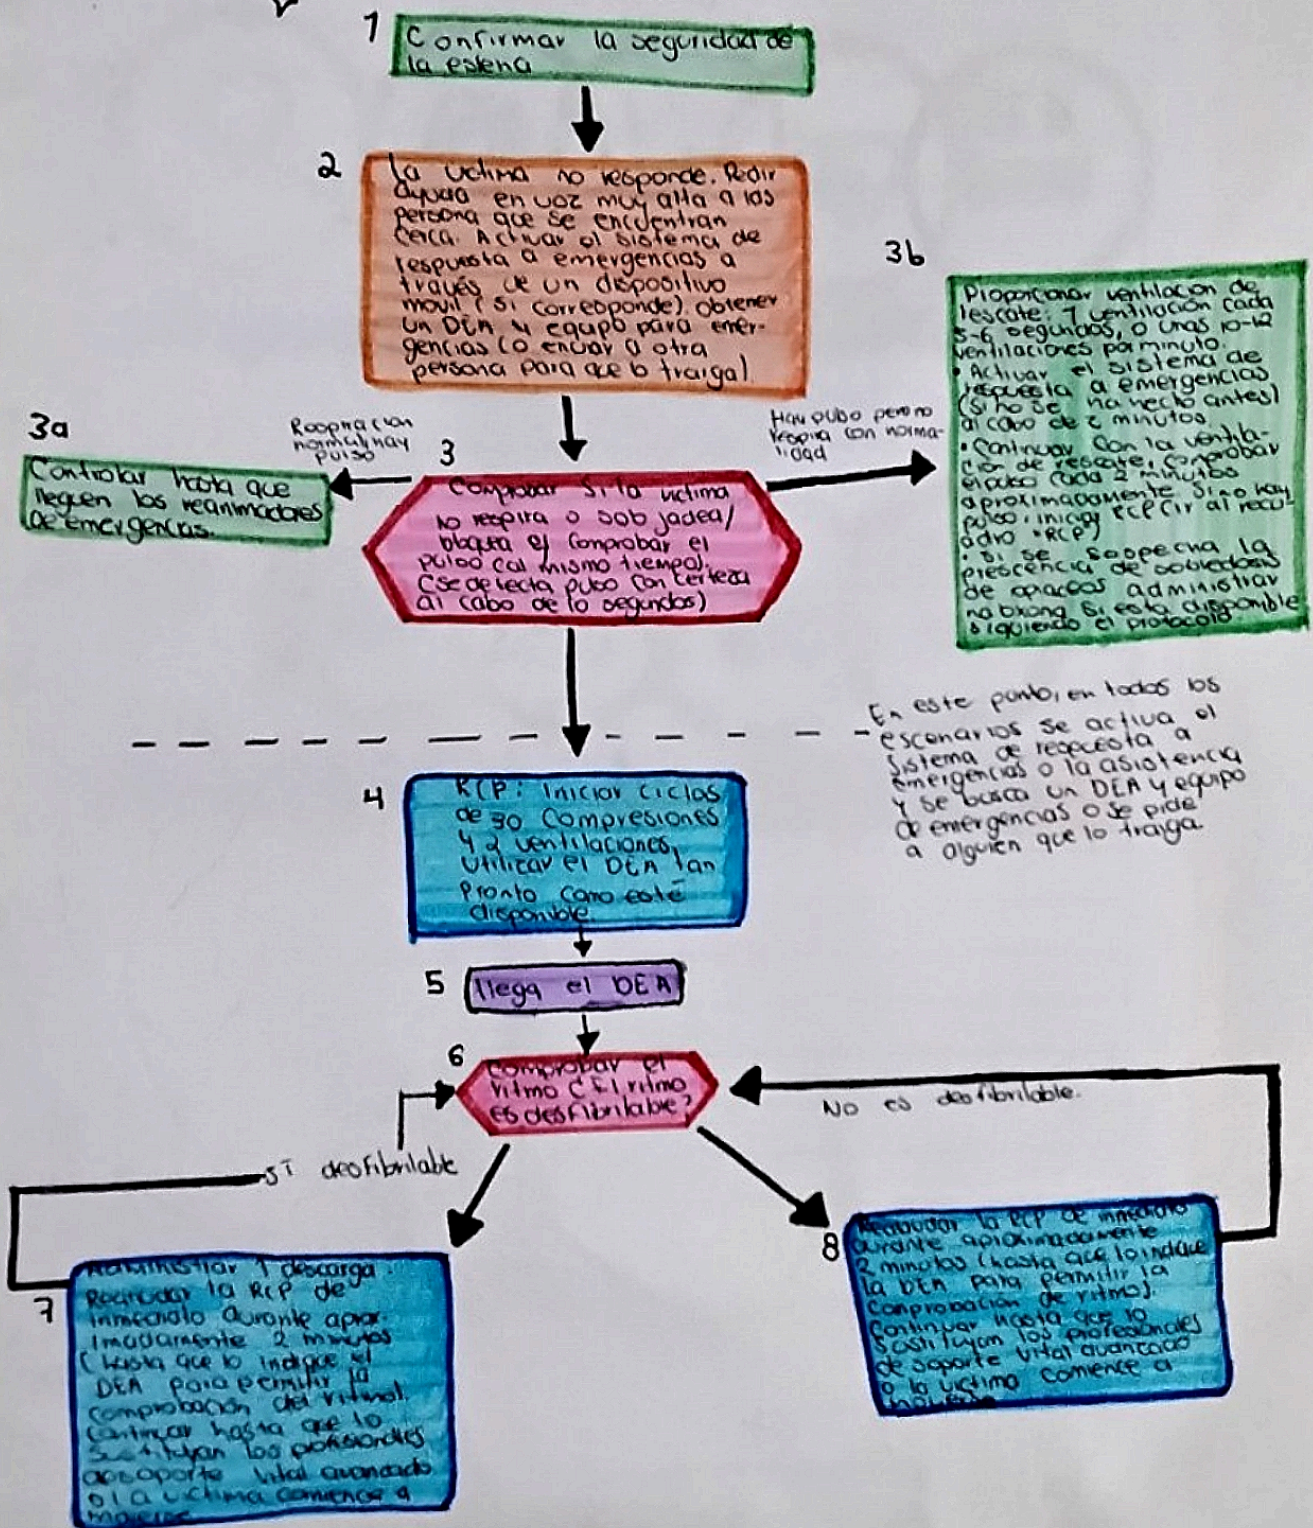 1
Confirmar la seguridad de
la esena
2
la victima no responde. Pedir
Ayuda en voz muy alta a las
persona que se encuentran
cerca. Activar el sistema de
respuesta a emergencias a
través de un dispositivo
movil (si corresponde). obtener
un DEA y equipo para emer-
gencias (o enviar a otra
persona para que lo traiga)
3a
Respiracion
normal, hay
pulso
Controlar hasta que
lleguen los reanimadores
De emergencias.
3
Comprobar si la victima
no respira o solo jadea/
comprobar el
pulso (al mismo tiempo).
(se detecta pulso con certeza
al cabo de 10 segundos)
Hay pulso pero no
respira con norma-
lidad
3b
Proporcionar ventilacion de
rescate: 1 ventilación cada
5-6 segundos, o unas 10-12
ventilaciones por minuto.
• Activar el sistema de
respuesta a emergencias
(si no se ha hecho antes)
al cabo de 2 minutos
• Continuar con la ventila-
ción de rescate, comprobar
el pulso cada 2 minutos
aproximadamente. Si no hay
pulso, iniciar RCP (ir al recu-
adro "RCP")
• si se sospecha la
prescencia de sobredosis
de opiaceos administrar
naloxona si esta disponible
siguiendo el protocolo.
En este punto, en todos los
escenarios se activa el
sistema de respuesta a
emergencias o la asistencia
y se busca un DEA y equipo
de emergencias o se pide
a alguien que lo traiga
4
RCP: Iniciar ciclos
de 30 compresiones
y 2 ventilaciones,
Utilizar el DEA tan
Pronto como esté
disponible.
5
llega el DEA
6
Comprobar el
ritmo ¿El ritmo
es desfibrilable?
No es desfibrilable.
Sí desfibrilable
7
Administrar 1 descarga.
Reanudar la RCP de
inmediato durante aprox-
imadamente 2 minutos
(hasta que lo indique el
DEA para permitir la
comprobación del ritmo).
continuar hasta que lo
sustituyan los profesionales
de soporte vital avanzado
o la victima comience a
moverse
8
Reanudar la RCP de inmediato
durante aproximadamente
2 minutos (hasta que lo indique
la DEA para permitir la
comprobación de ritmo).
Continuar hasta que lo
sustituyan los profesionales
de soporte vital avanzado
o la victima comience a
moverse